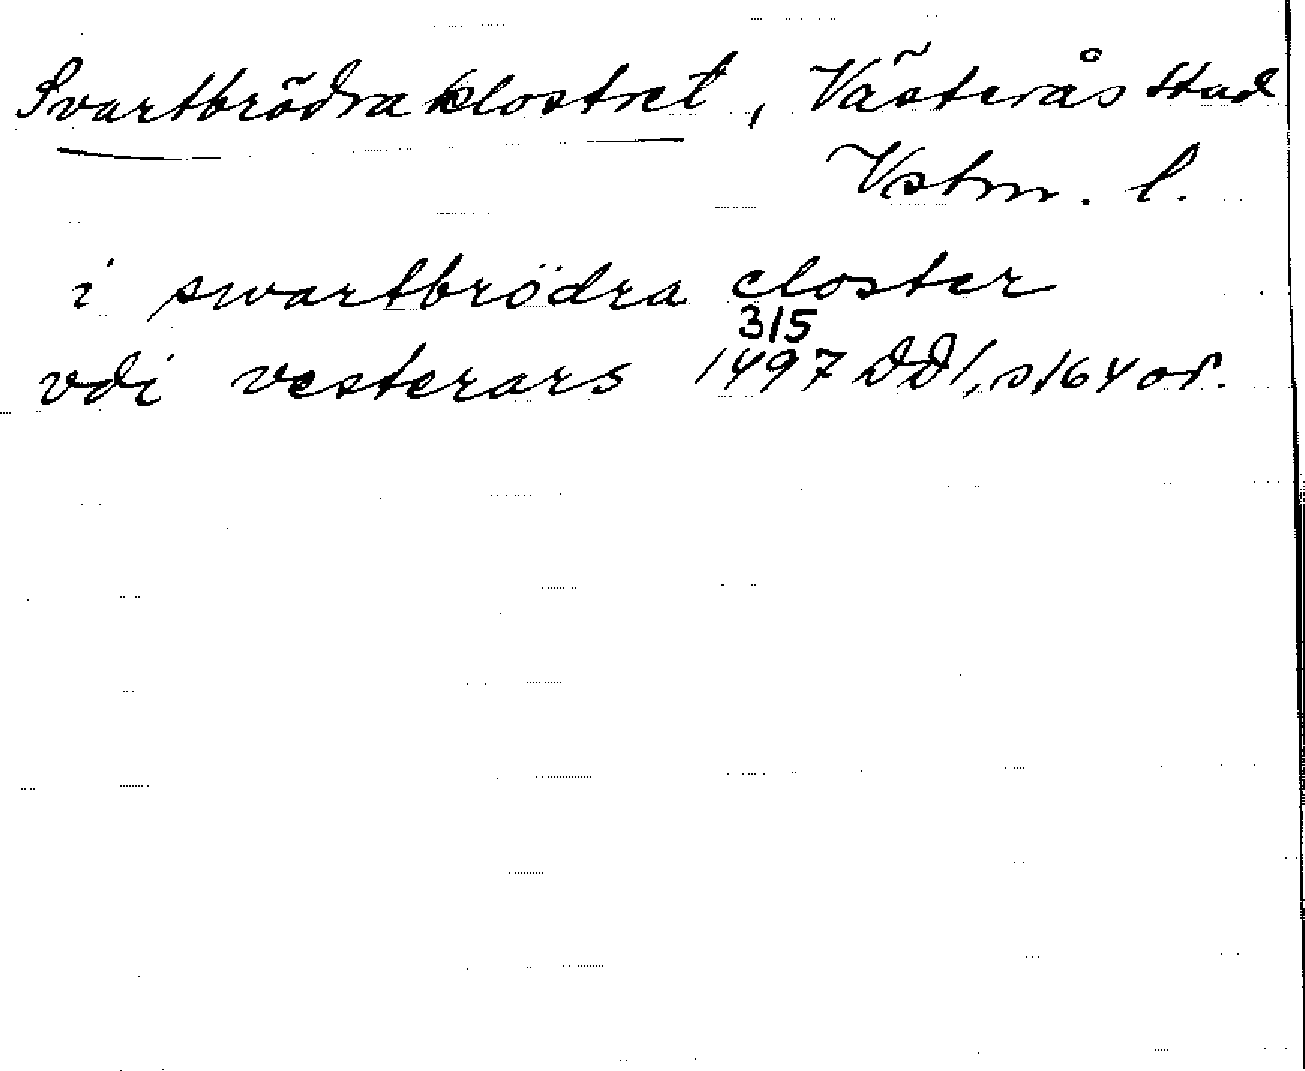 Svartbrödraklostret, Västerås stad
Vstm. l.
i swartbrödra closter
vdi vesterars 1497 31/5 DD1, s 164 or.